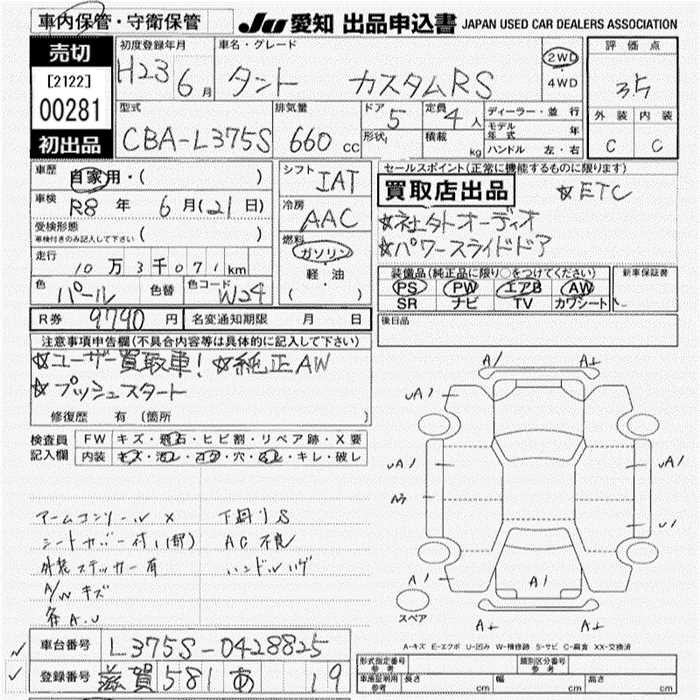 車内保管・守衛保管
JU 愛知 出品申込書 JAPAN USED CAR DEALERS ASSOCIATION
売切
[2122]
00281
初出品
初度登録年月
H23 6月
車名・グレード
タント カスタムRS
2WD
4WD
評価点
3.5
外装 内装
C C
型式
CBA-L375S
排気量
660 cc
ドア 5
形状
定員 4人
積載 kg
ディーラー・並行
モデル年式 年
ハンドル 左・右
車歴
自家用・( )
車検
R8年 6月(21日)
受検形態
車検付きのみ記入して下さい ( )
走行
10万3千071km
色 パール
色替
色コード W24
シフト
IAT
冷房
AAC
燃料
ガソリン
軽・油
( )
セールスポイント(正常に機能するものに限ります)
買取店出品 ☆ETC
☆社外オーディオ
☆パワースライドドア
装備品(純正品に限り○をつけてください)
PS PW エアB AW
SR ナビ TV カワシート
新車保証書
後日品
R券 9790円
名変通知期限 月 日
注意事項申告欄(不具合内容等は具体的に記入して下さい)
☆ユーザー買取車! ☆純正AW
☆プッシュスタート
修復歴 有 (箇所 )
検査員記入欄
FW キズ・飛石・ヒビ割・リペア跡・X要
内装 キズ・汚れ・コゲ・穴・スレ・キレ・破レ
アームコンソール X 下廻りS
シートカバー付(1部) AC不良
外装ステッカー有 ハンドルハゲ
A/Wキズ
各A.U
A1 A2
UA1
UA1 UA1
A3 U1
A1 A1 A1
A2 A2
スペア
A-キズ E-エクボ U-凹み W-補修跡 S-サビ C-腐食 XX-交換済
車台番号 L375S-0428825
登録番号 滋賀 581 あ 19
形式指定番号 参考
類別区分番号 参考
車庫証明用 参考
長さ cm
幅 cm
高さ cm